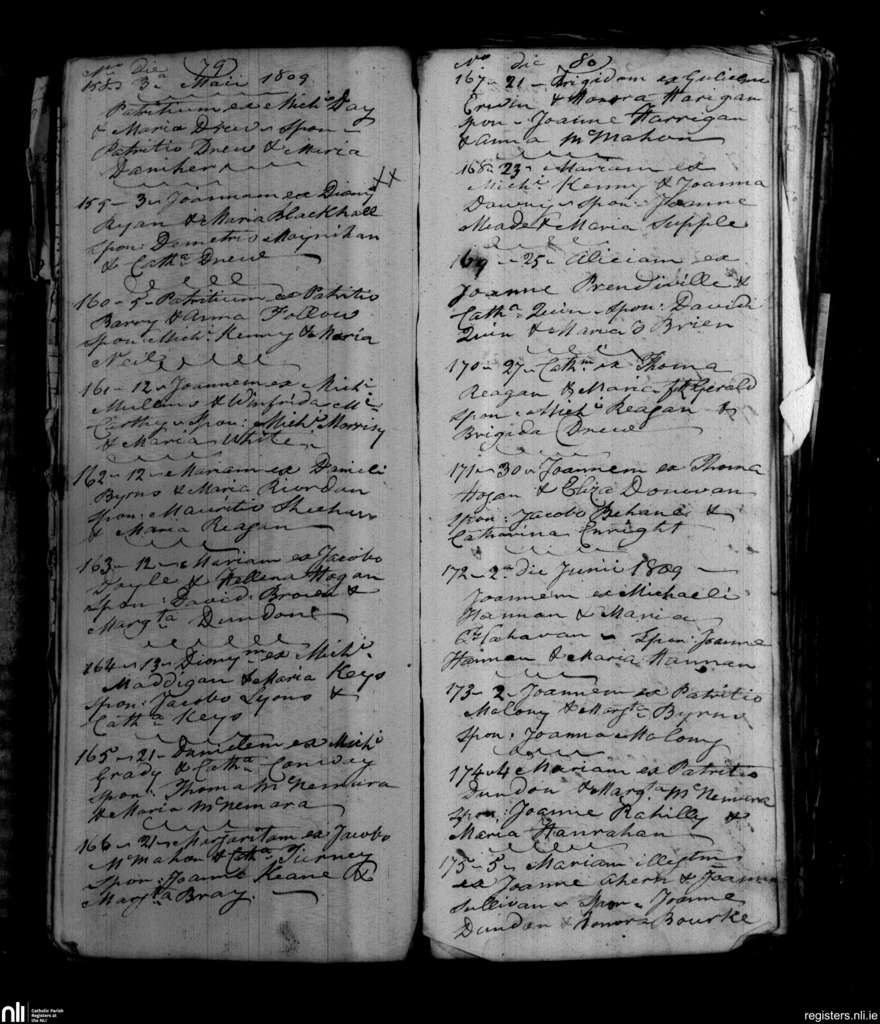 No die 79
158 3a Maii 1809
Patritium ex Michl Day
& Maria Drew Spon
Patritio Drew & Maria
Daniher
159 - 3 - Joannem ex Diony
Ryan & Maria Blackhall
Spon: Demetrio Moynihan
& Catha Drew
160 - 5 - Patritium ex Patritio
Barry & Anna
Spon: Michl Kenny & Maria
Neil
161 - 12 - Joannem ex Michl
Mullins & Winifrida Mc
Carthy Spon: Michl Morrisy
& Maria White
162 - 12 - Mariam ex Danieli
Byrns & Maria Riordan
Spon: Mauritio
& Maria Reagan
163 - 12 - Mariam ex Jacobo
& Hellena Hogan
Spon: David: Brown &
Margta Dundon
164 - 13 - Dionym ex Michl
Maddigan & Maria Keys
Spon: Jacobo Lyons &
Catha Keys
165 - 21 - Danielem ex Michl
Grady & Catha Conwey
Spon: Thoma McNemara
& Maria McNemara
166 - 21 - Margaritam ex Jacobo
McMahon & Catha Turney
Spon: Joanne Keane &
Margta Bray
No die 80
167 - 21 - Brigidam ex Gulielmo
Erwin & Honora Harigan
Spon - Joanne Harrigan
& Anna McMahon
168 - 23 - Mariam ex
Michl Kenny & Joanna
Downy Spon: Joanne
Meade & Maria Supple
169 - 25 - Aliciam ex
Joanne Prendiville &
Catha Quin Spon: Davidi
Quin & Maria O Brien
170 - 27 - Cathm ex Thoma
Reagan & Maria fitzGerald
Spon: Michl Reagan &
Brigida Drew
171 - 30 - Joannem ex Thoma
Hogan & Eliza Donovan
Spon: Jacobo Behane &
Catharina Enright
172 - 2a die Junii 1809
Joannem ex Michaeli
Hannan & Maria
Spon: Joanne
Hannan & Maria Hannan
173 - 2 Joannem ex Patritio
Molony & Margta Byrns
Spon: Joanna Molony
174 - 4 Mariam ex Patritio
Dundon & Margta McNemara
Spon: Joanne Rahilly &
Maria Hanrahan
175 - 5 - Mariam illegtm
ex Joanne Ahern & Joanna
Sullivan Spon Joanne
Dundon & Honora Bourke
nli
Catholic Parish
Registers at
the NLI
registers.nli.ie